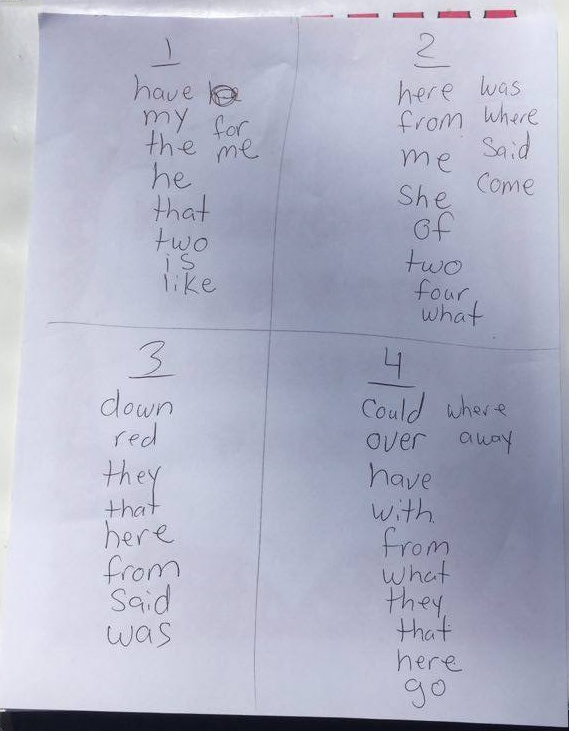 1
have
my
the for
he me
that
two
is
like
2
here was
from where
me said
she come
of
two
four
what
3
down
red
they
that
here
from
said
was
4
could where
over away
have
with
from
what
they
that
here
go